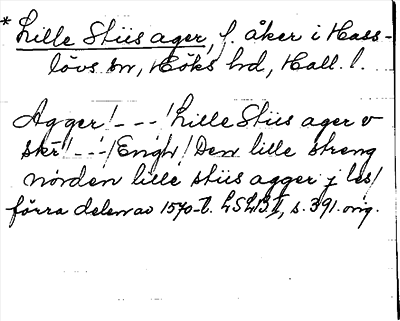 * Lille Stiis ager, f. åker i Hass-
lövs sn, Höks hd, Hall. l.
Agger/---/Lille Stiis ager v
skr//---/Engh/Den lille streng
norden lille stiis agger j les/
förra delen av 1570-t. LSLB I, s. 391. orig.